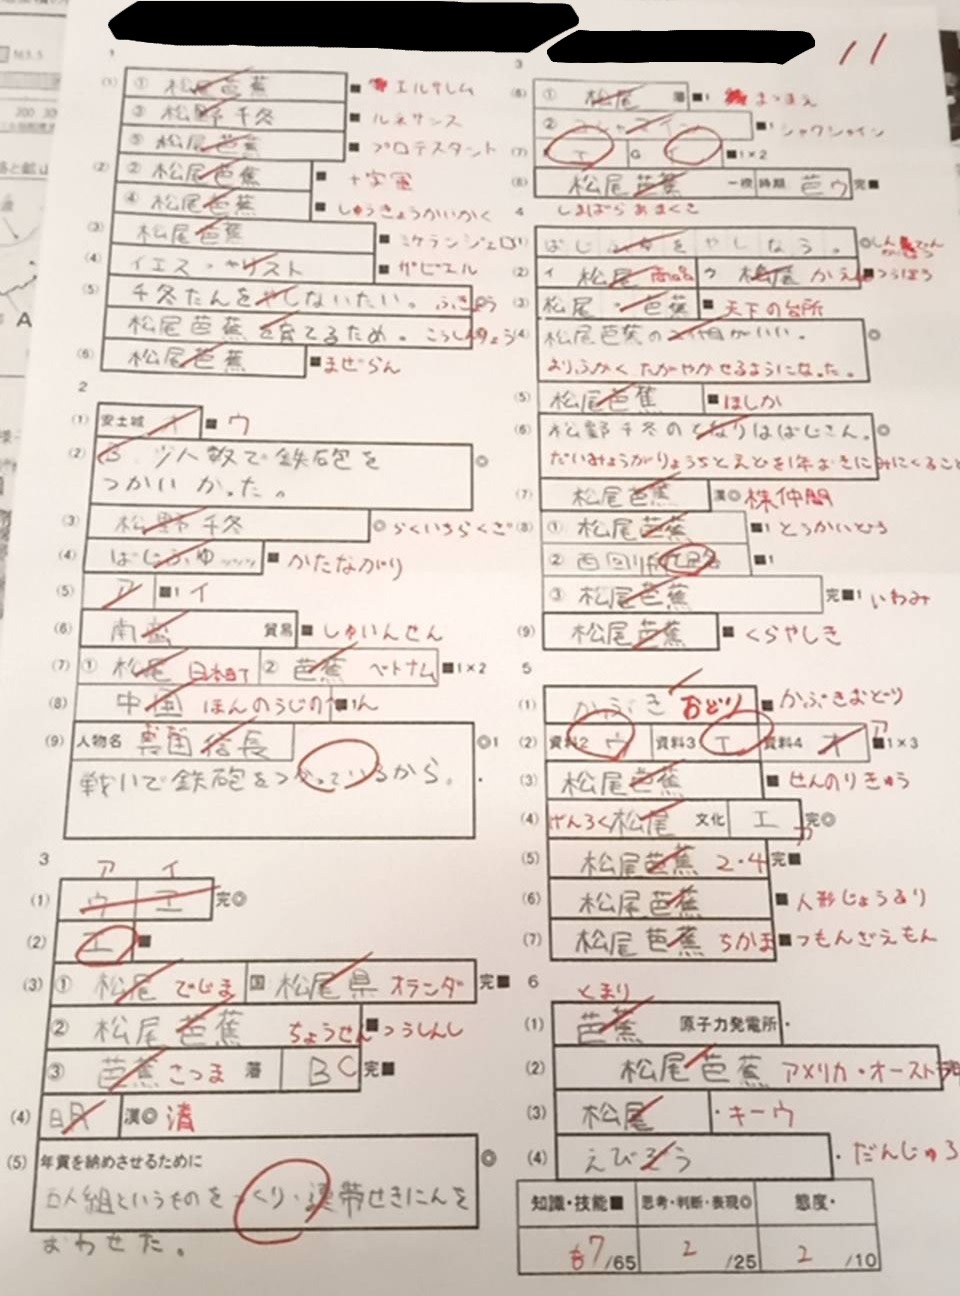 11
1
(1) ① 松尾芭蕉 ■ エルサレム
③ 松野千冬 ■ ルネサンス
⑤ 松尾芭蕉 ■ プロテスタント
(2) ② 松尾芭蕉 ■ 十字軍
④ 松尾芭蕉 ■ しゅうきょうかいかく
(3) 松尾芭蕉 ■ ミケランジェロ
(4) イエス・キリスト ■ ザビエル
(5) 千冬たんをやしないたい。
松尾芭蕉を育てるため。こうしんりょう
(6) 松尾芭蕉 ■ まぜらん
2
(1) 安土城 ■ ウ
(2) 少人数で鉄砲を ◎
つかいかった。
(3) 松野千冬 ◎ らくいちらくざ
(4) ばじふゆッッッ ■ かたながり
(5) ア ■1 イ
(6) 南蛮 貿易 ■ しゅいんせん
(7) ① 松尾 日本町 ② 芭蕉 ベトナム ■1×2
(8) 中国 ほんのうじの
(9) 人物名 織田信長 ◎1
戦いで鉄砲をつかっているから。
3
ア イ
(1) ウ エ 完◎
(2) エ ■
(3) ① 松尾 でじま 国 松尾県 オランダ 完■
② 松尾芭蕉 ちょうせん ■ つうしんし
③ 芭蕉 さつま 藩 BC 完■
(4) 明 漢◎ 清
(5) 年貢を納めさせるために ◎
五人組というものをつくり、連帯せきにんを
おわせた。
3
(6) ① 松尾 藩 ■1 まつまえ
② コシャマイン ■1 シャクシャイン
(7) エ G イ ■1×2
(8) 松尾芭蕉 一揆 時期 芭ウ 完■
しまばらあまくさ
4
(1) ばじふゆをやしなう。◎
(2) イ 松尾 商品 ウ 松尾 かえ ■
(3) 松尾・芭蕉 ■ 天下の台所
(4) 松尾芭蕉の2代目がいい。 ◎
よりふかくたがやかせるようになった。
(5) 松尾芭蕉 ■ ほしか
(6) 松野千冬のとなりはばじさん。◎
だいみょうがりょうちとえどを1年おきに
(7) 松尾芭蕉 漢◎ 株仲間
(8) ① 松尾芭蕉 ■1 とうかいどう
② 西回り航路 ■1
③ 松尾芭蕉 完■1 いわみ
(9) 松尾芭蕉 ■ くらやしき
5
(1) かぶき おどり ■ かぶきおどり
(2) 資料2 ウ 資料3 エ 資料4 オ ア ■1×3
(3) 松尾芭蕉 ■ せんのりきゅう
(4) げんろく 松尾 文化 エ ア 完◎
(5) 松尾芭蕉 2・4 完■
(6) 松尾芭蕉 ■ 人形じょうるり
(7) 松尾芭蕉 ちかま ■ つもんざえもん
6
とまり
(1) 芭蕉 原子力発電所 ・
(2) 松尾芭蕉 アメリカ・オースト
(3) 松尾 ・キーウ
(4) えびぞう ・ だんじゅろ
知識・技能■ 思考・判断・表現◎ 態度・
7/65 2/25 2/10